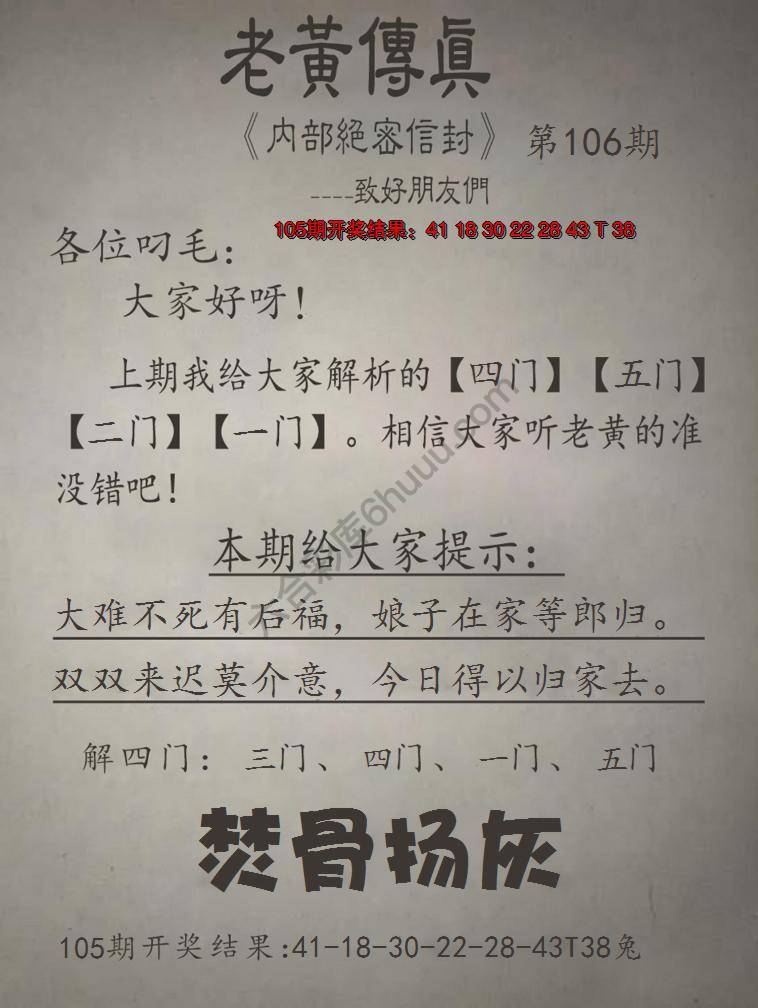 老黃傳真
《内部絕密信封》 第106期
----致好朋友們
105期开奖结果：41 18 30 22 28 43 T 38
各位叼毛：
大家好呀！
上期我给大家解析的【四门】【五门】
【二门】【一门】。相信大家听老黄的准
没错吧！
本期给大家提示：
大难不死有后福，娘子在家等郎归。
双双来迟莫介意，今日得以归家去。
解四门：三门、四门、一门、五门
焚骨扬灰
105期开奖结果:41-18-30-22-28-43T38兔
六合彩库6huuu.com